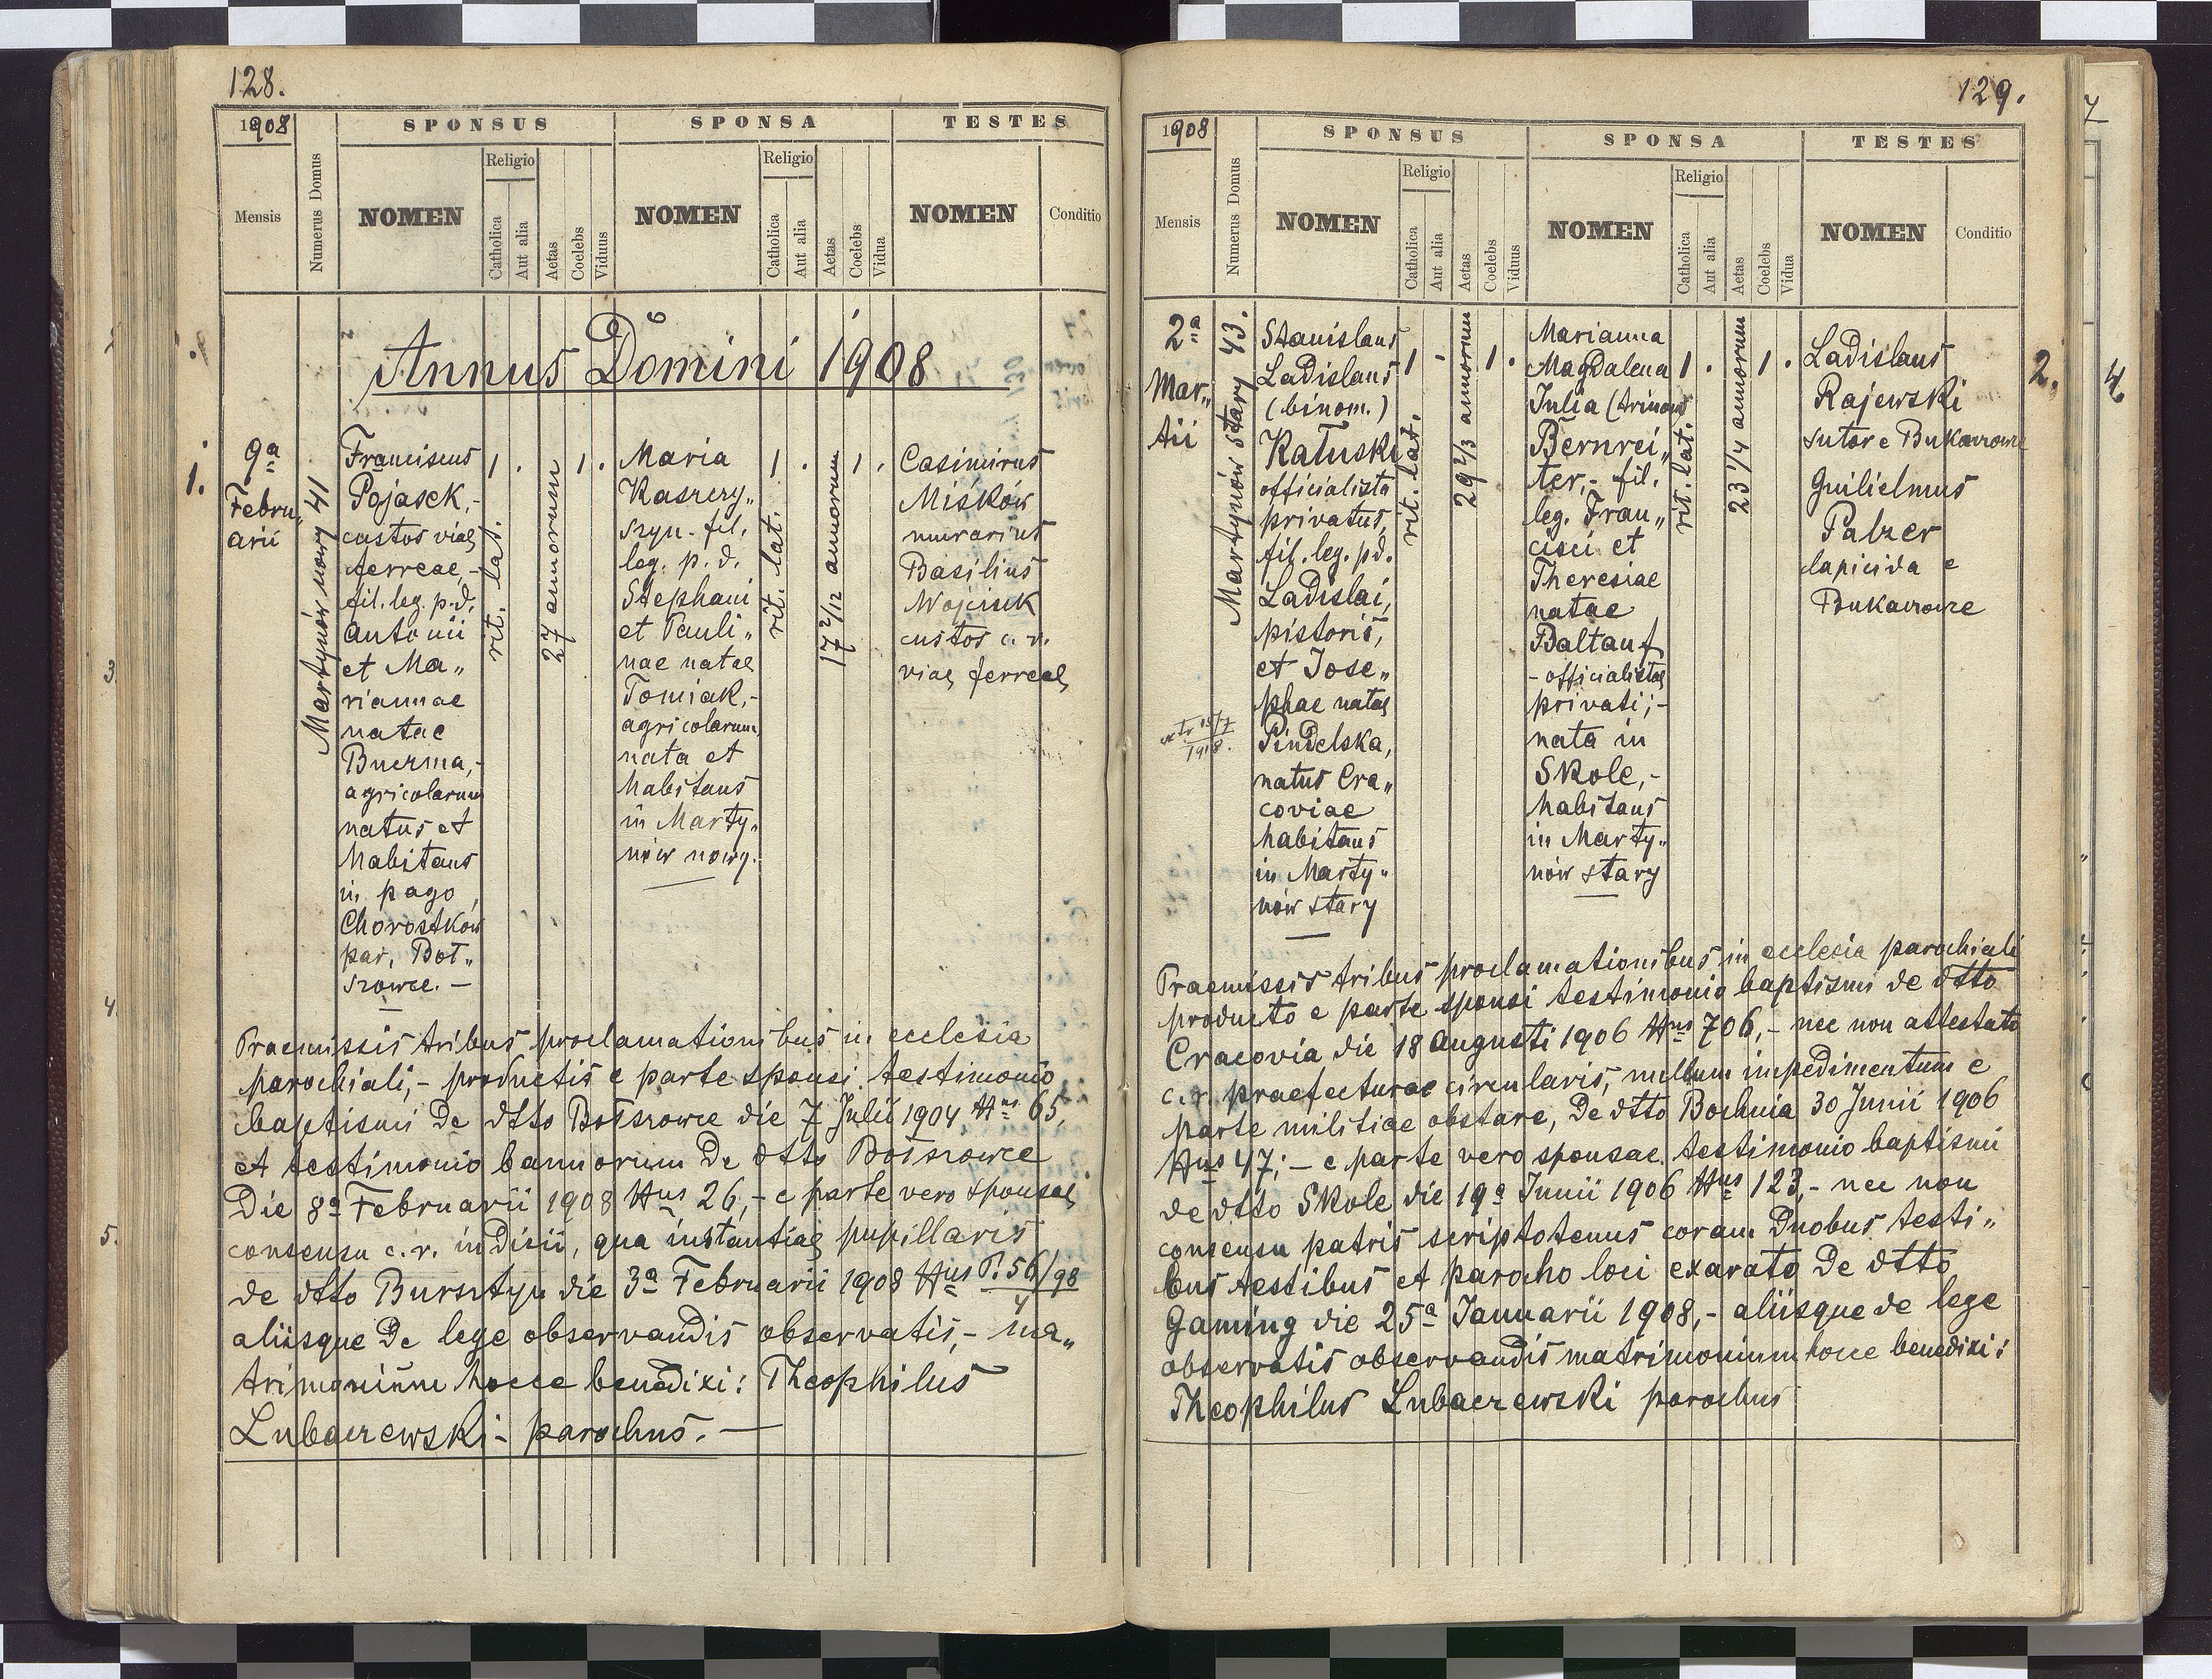 128.
1908
SPONSUS
SPONSA
TESTES
Mensis
Numerus Domus
NOMEN
Religio
Catholica
Aut alia
Aetas
Coelebs
Viduus
NOMEN
Religio
Catholica
Aut alia
Aetas
Coelebs
Vidua
NOMEN
Conditio
Annus Domini 1908
1.
9a
Febru„
arii
Martynów nowy 41
Franciscus
Pojasek,-
custos viae
ferreae,-
fil. leg. p.d.
Antonii
et Ma„
riannae
natae
Buczma,-
agricolarum
natus et
habitans
in pago
Chorostków
par. Boł„
szowce. -
1 .
rit. lat.
27 annorum
1 .
Maria
Kaszczy„
szyn - fil.
leg. p. d.
Stephani
et Pauli„
nae natae
Tomiak,-
agricolarum
nata et
habitans
in Marty„
nów nowy.
1 .
rit. lat.
17 2/12 annorum
1 .
Casimirus
Miśków
murarius
Basilius
Wojcisik
custos c. r.
viae ferreae
Praemissis tribus proclamationibus in ecclesia
parochiali,- productis e parte sponsi testimonio
baptismi de dtto Bołszowce die 7 Julii 1904 Nus 65,
et testimonio bannorum de dtto Bołszowce
die 8a Februarii 1908 Nus 26,- e parte vero sponsae
consensu c. r. indicii, qua instantiae pupillaris
de dtto Bursztyn die 3a Februarii 1908 Nus P. 56/98
4
aliisque de lege observandis observatis,- ma„
trimonium hocce benedixi: Theophilus
Lubaczewski - parochus. -
129.
1908
SPONSUS
SPONSA
TESTES
Mensis
Numerus Domus
NOMEN
Religio
Catholica
Aut alia
Aetas
Coelebs
Viduus
NOMEN
Religio
Catholica
Aut alia
Aetas
Coelebs
Vidua
NOMEN
Conditio
2a
Mar„
tii
Martynów stary 43.
Stanislaus
Ladislaus
(binom.)
Kałuski
officialista
privatus,
fil. leg. p.d.
Ladislai,
pistoris,
et Jose„
phae natae
Pindelska,
natus Cra„
coviae
habitans
in Marty„
nów stary
1 .
rit. lat.
29 2/3 annorum
1 .
Marianna
Magdalena
Julia (trinom)
Bernrei„
ter,- fil.
leg. Fran„
cisci et
Theresiae
natae
Baltauf
- officialistae
privati;-
nata in
Skole,-
habitans
in Marty„
nów stary
1 .
rit. lat.
23 1/4 annorum
1 .
Ladislaus
Rajewski
sutor e Bukaczowce
Guilielmus
Palzer
lapicida e
Bukaczowce
2.
4.
extr. 15/7
1918.
Praemissis tribus proclamationibus in ecclesia parochiali
producto e parte sponsi testimonio baptismi de dtto
Cracovia die 18 Augusti 1906 Nus 706,- nec non attestato
c. r. praefecturae circularis, nullum impedimentum e
parte militiae obstare, de dtto Bochnia 30 Junii 1906
Nus 47;- e parte vero sponsae testimonio baptismi
de dtto Skole die 19a Junii 1906 Nus 123,- nec non
consensu patris scriptotenus coram duobus testi„
bus testibus et parocho loci exarato de dtto
Gaming die 25a Januarii 1908,- aliisque de lege
observatis observandis matrimonium hocce benedixi:
Theophilus Lubaczewski parochus
3.
4.
5.